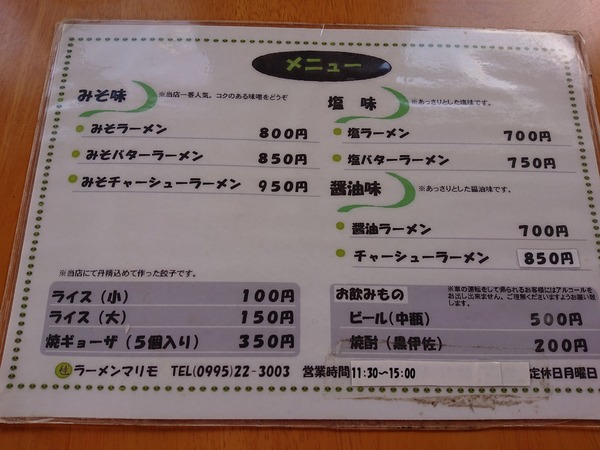 メニュー
みそ味
※当店一番人気。コクのある味噌をどうぞ
みそラーメン 800円
みそバターラーメン 850円
みそチャーシューラーメン 950円
塩 味
※あっさりとした塩味です。
塩ラーメン 700円
塩バターラーメン 750円
醤油味
※あっさりとした醤油味です。
醤油ラーメン 700円
チャーシューラーメン 850円
※当店にて丹精込めて作った餃子です。
ライス(小) 100円
ライス(大) 150円
焼ギョーザ(5個入り) 350円
お飲みもの
※車の運転をして帰られるお客様にはアルコールを
お出し出来ません、ご理解くださいますようお願い致
します。
ビール(中瓶) 500円
焼酎(黒伊佐) 200円
ラーメンマリモ TEL(0995)22-3003 営業時間 11:30~15:00 定休日月曜日